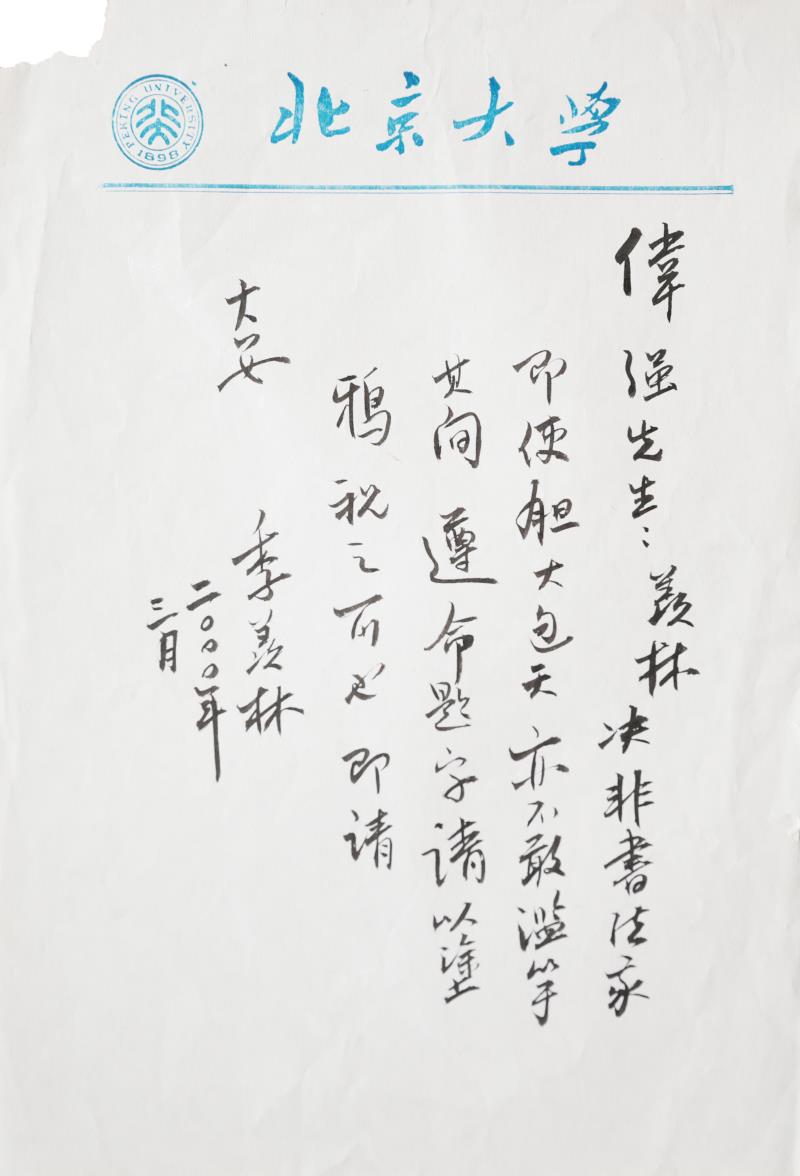 PEKING UNIVERSITY 1898
北京大学
偉强先生：羨林决非書法家
即使胆大包天亦不敢濫竽
其间 遵命題字請以塗
鴉視之可也 即請
大安
季羨林
二〇〇〇年
三月